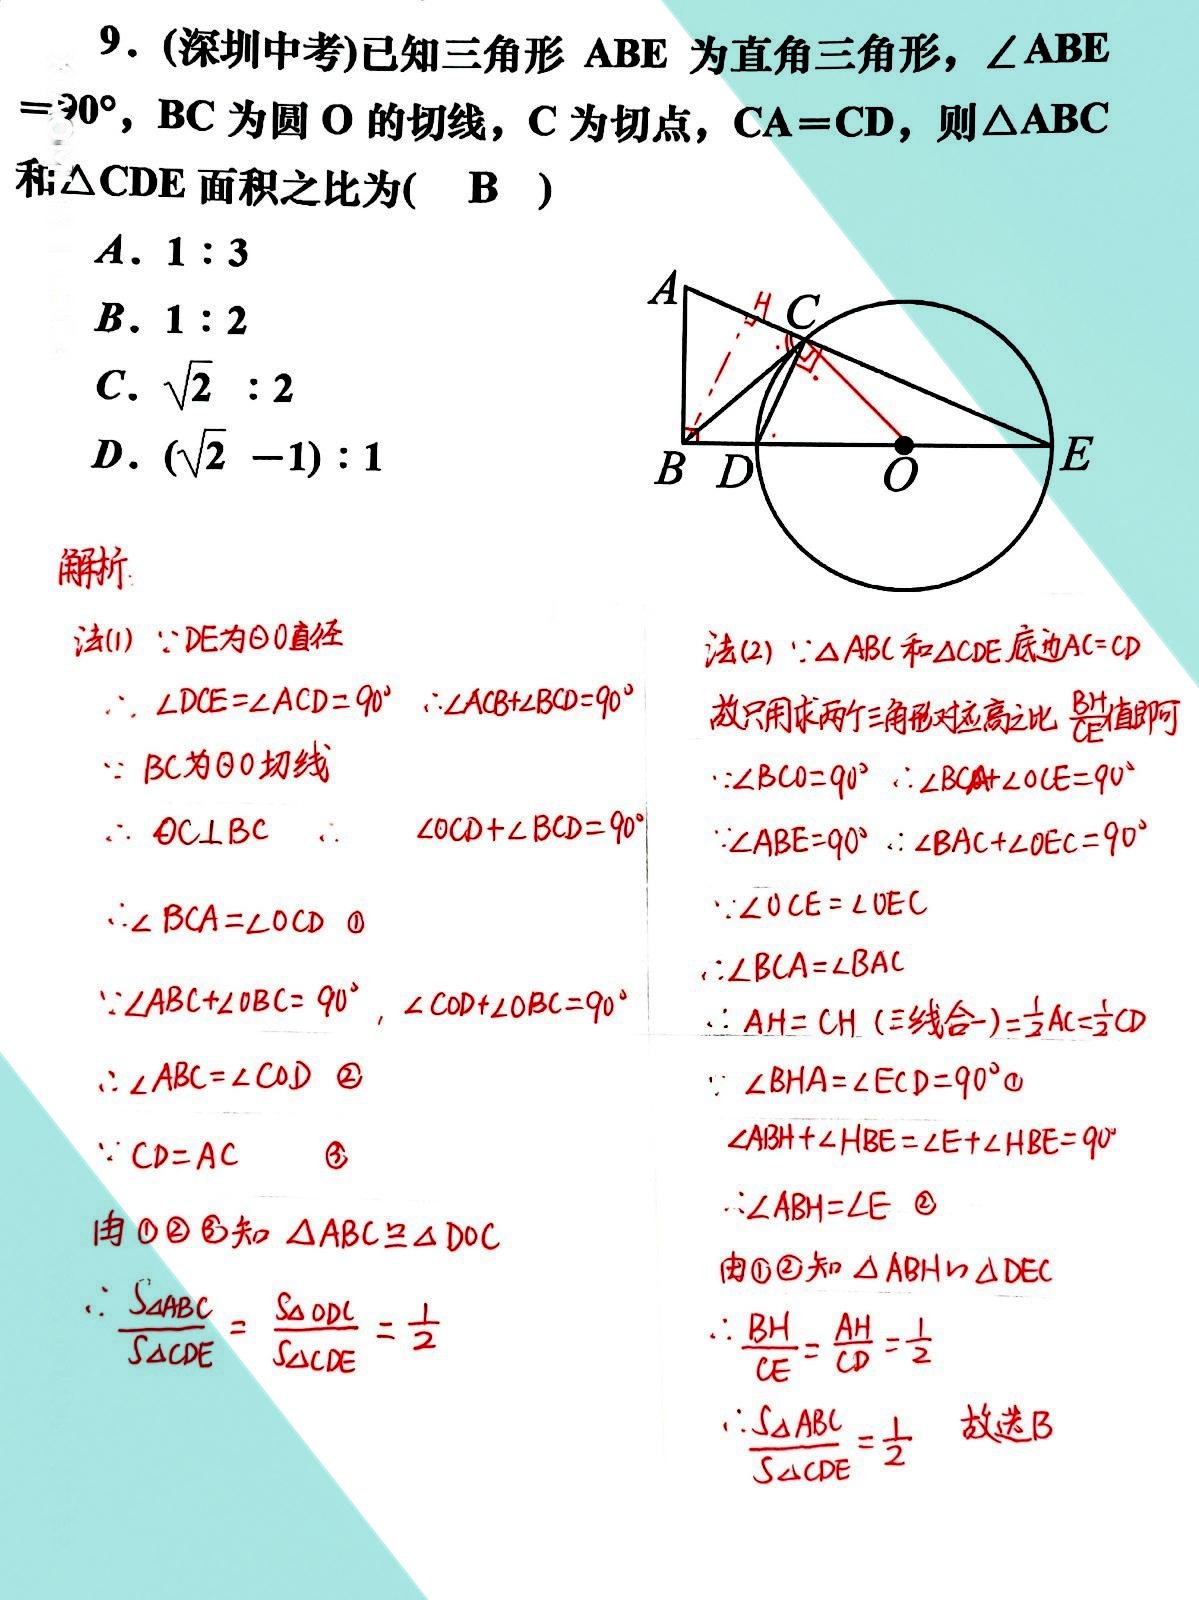 9. (深圳中考)已知三角形 ABE 为直角三角形，∠ABE
=90°，BC 为圆 O 的切线，C 为切点，CA=CD，则△ABC
和△CDE 面积之比为( B )
A. 1：3
B. 1：2
C. √2 ：2
D. (√2 －1)：1
A
H
C
B
D
O
E
解析:
法(1) ∵DE为⊙O直径
∴ ∠DCE=∠ACD=90° ∴∠ACB+∠BCD=90°
∵ BC为⊙O切线
∴ OC⊥BC ∴ ∠OCD+∠BCD=90°
∴∠BCA=∠OCD ①
∵∠ABC+∠OBC=90°, ∠COD+∠OBC=90°
∴∠ABC=∠COD ②
∵ CD=AC ③
由①②③知 △ABC≌△DOC
∴ S△ABC/S△CDE = S△ODC/S△CDE = 1/2
法(2) ∵△ABC和△CDE底边AC=CD
故只用求两个三角形对应高之比 BH/CE值即可
∵∠BCO=90° ∴∠BCA+∠OCE=90°
∵∠ABE=90° ∴∠BAC+∠OEC=90°
∵∠OCE=∠OEC
∴∠BCA=∠BAC
∴ AH=CH (三线合一)=1/2AC=1/2CD
∵ ∠BHA=∠ECD=90°①
∠ABH+∠HBE=∠E+∠HBE=90°
∴∠ABH=∠E ②
由①②知 △ABH∽△DEC
∴ BH/CE = AH/CD = 1/2
∴ S△ABC/S△CDE = 1/2 故选B